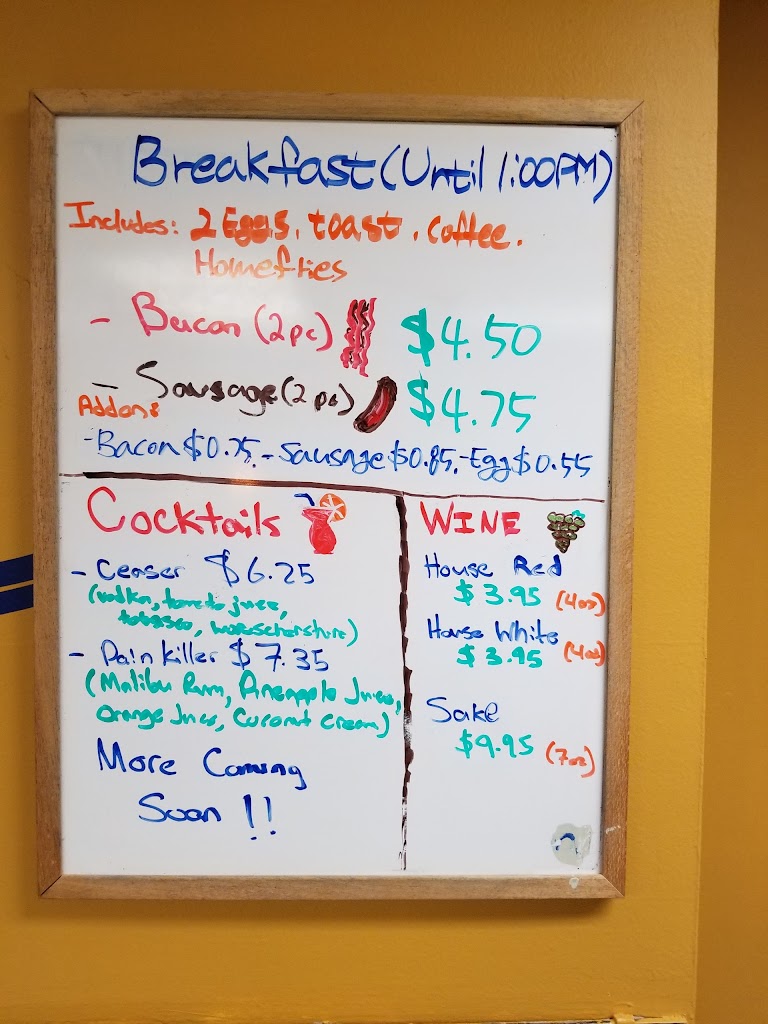 Breakfast (Until 1:00PM)
Includes: 2 Eggs, toast, coffee,
Homefries
- Bacon (2pc) $4.50
- Sausage (2pc) $4.75
Addons
- Bacon $0.75, - Sausage $0.85, - Egg $0.55
Cocktails
- Ceaser $6.25
(vodka, tomato juice,
tobasco, worschershire)
- Pain Killer $7.35
(Malibu Rum, Pineapple Juice,
Orange Juice, Coconut Cream)
More Coming
Soon !!
WINE
House Red
$3.95 (4oz)
House White
$3.95 (4oz)
Sake
$9.95 (7oz)